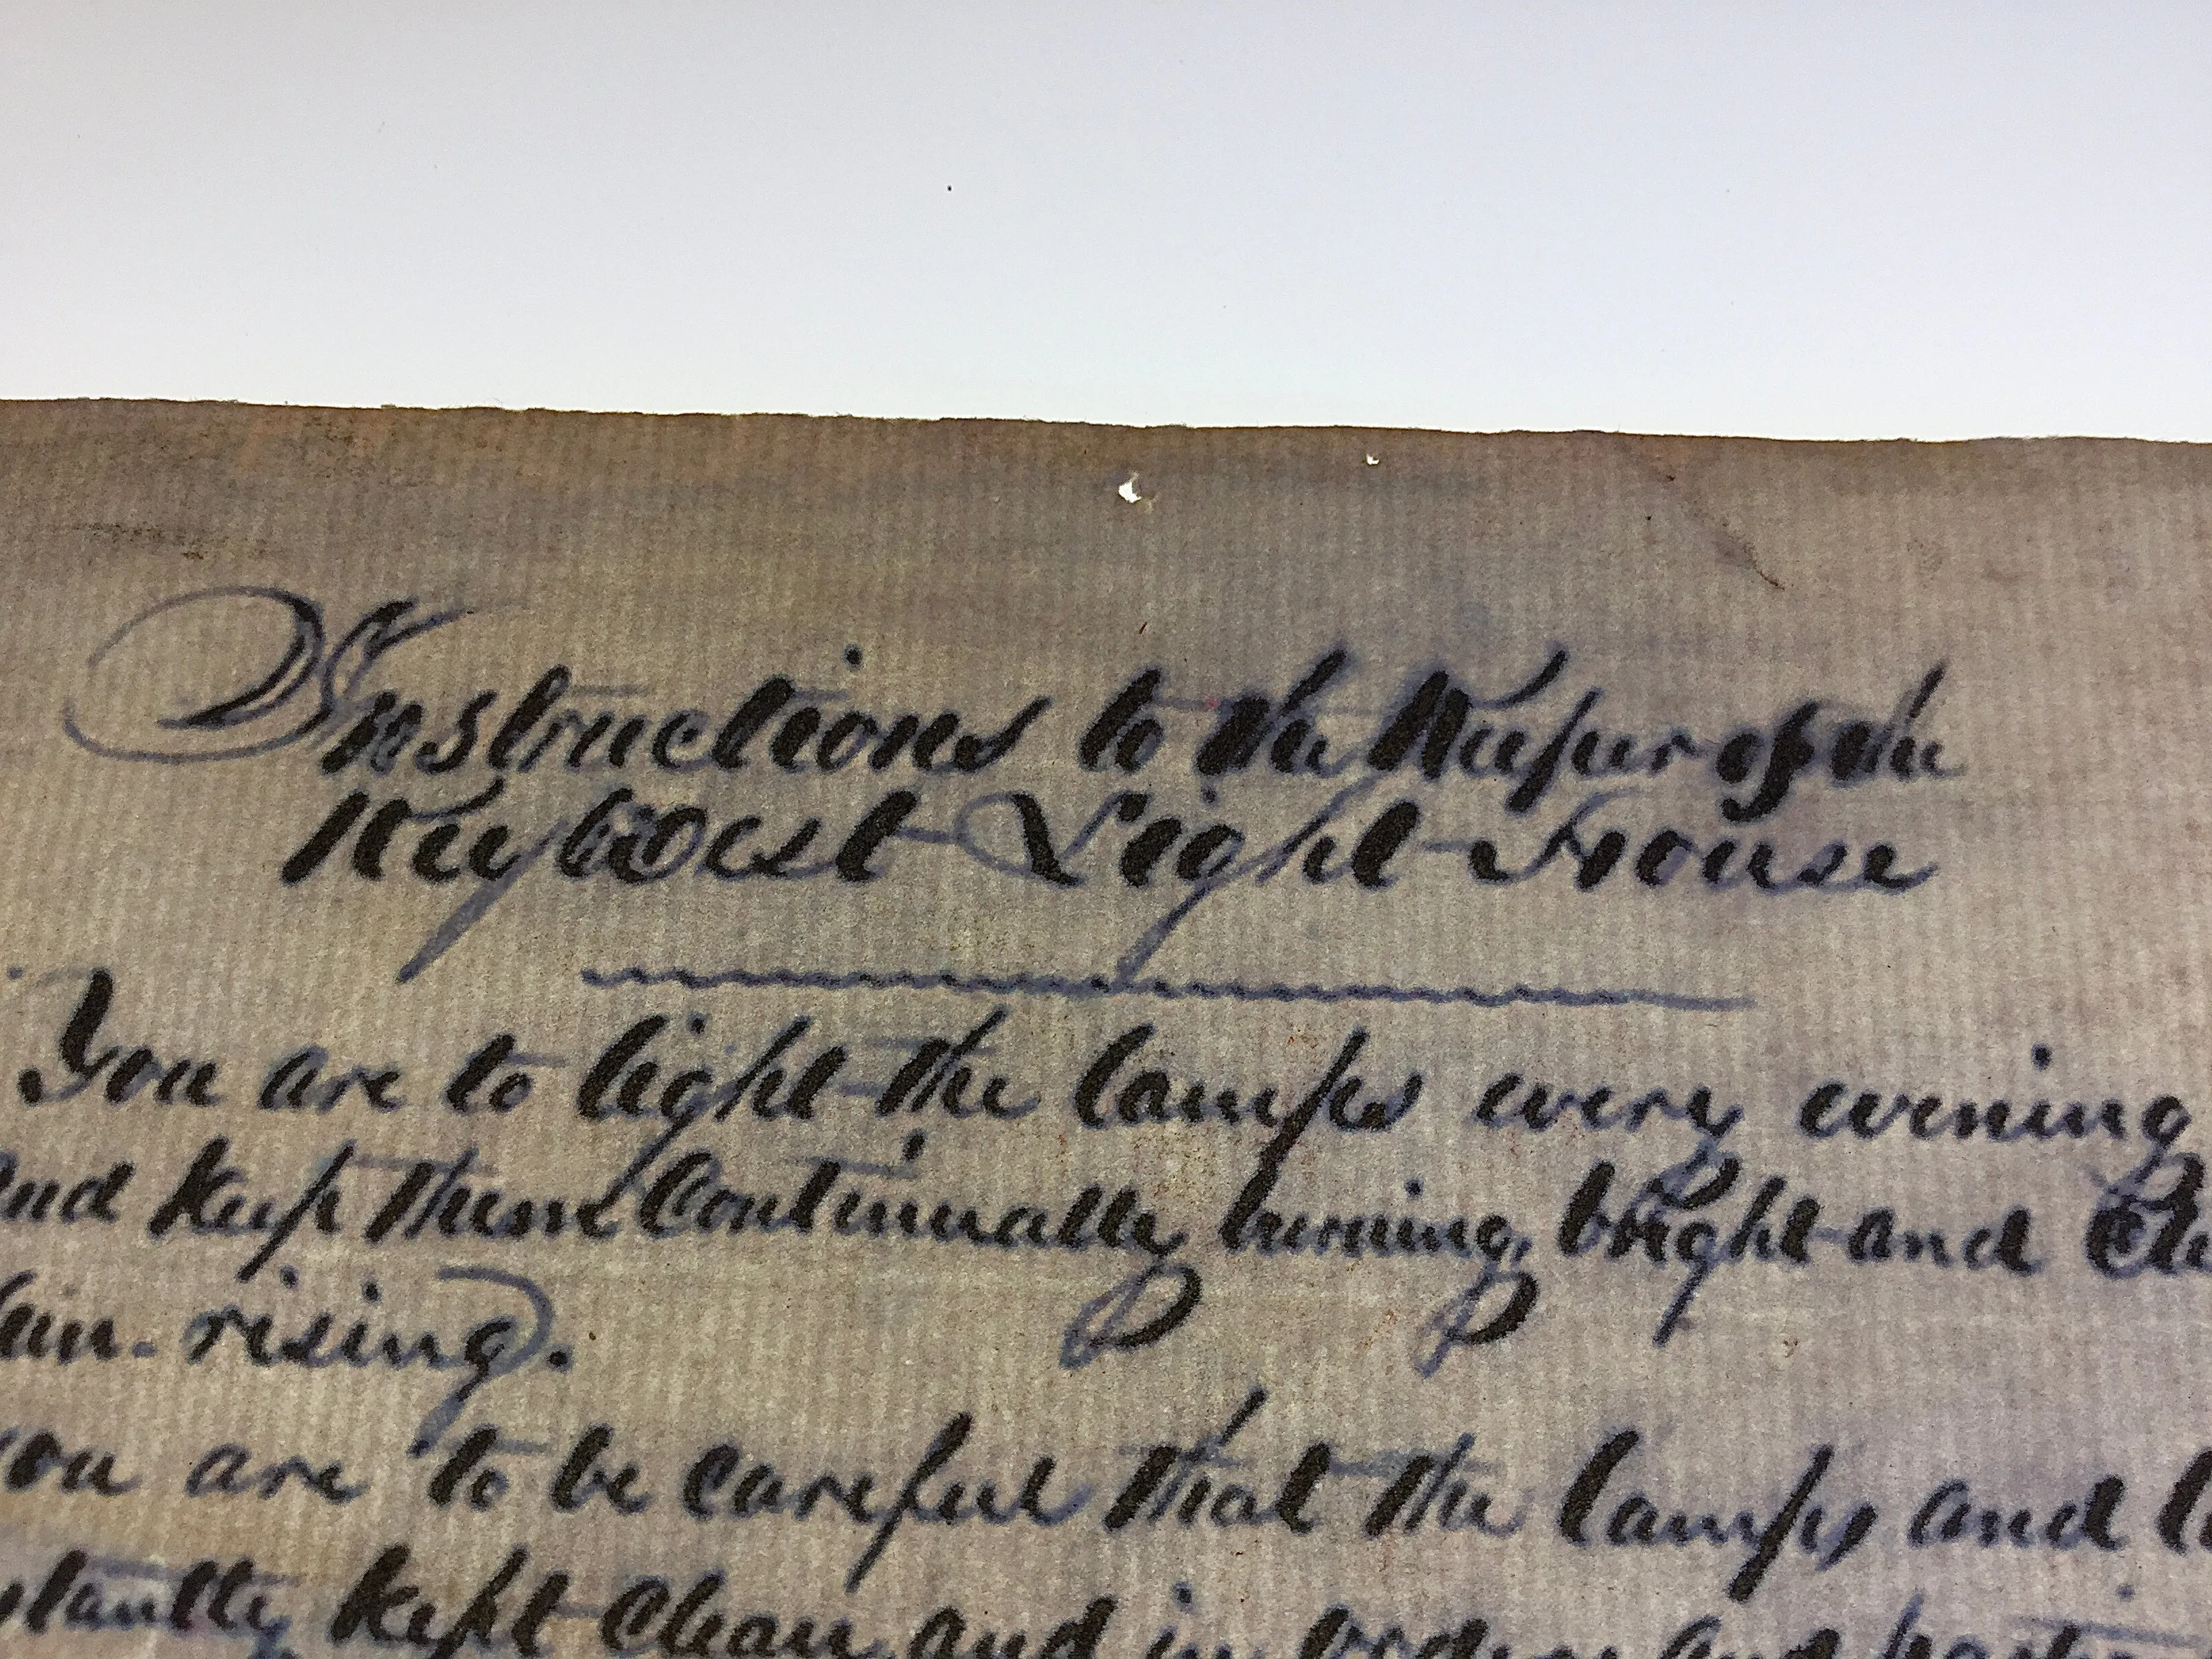 Instructions to the Keeper of the
Key West Light House
You are to light the lamps every evening
and keep them Continually burning, bright and Cle
rising.
you are to be careful that the lamps and la
stantly kept Clean and in order and parti